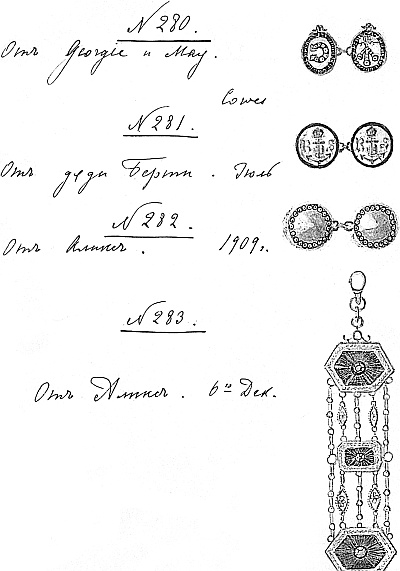 N 280.
Отъ Georgie и May.
Cowes
N 281.
Отъ дяди Берти. Іюль
N 282.
Отъ Аликсъ. 1909 г.
N 283.
Отъ Аликсъ. 6го Дек.